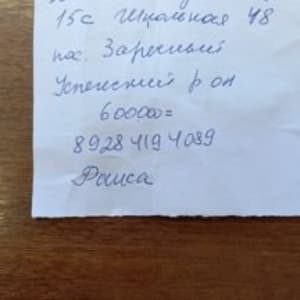 15с Школьная 48
пос. Заречный
Успенский р он
600000=
89284194089
Раиса